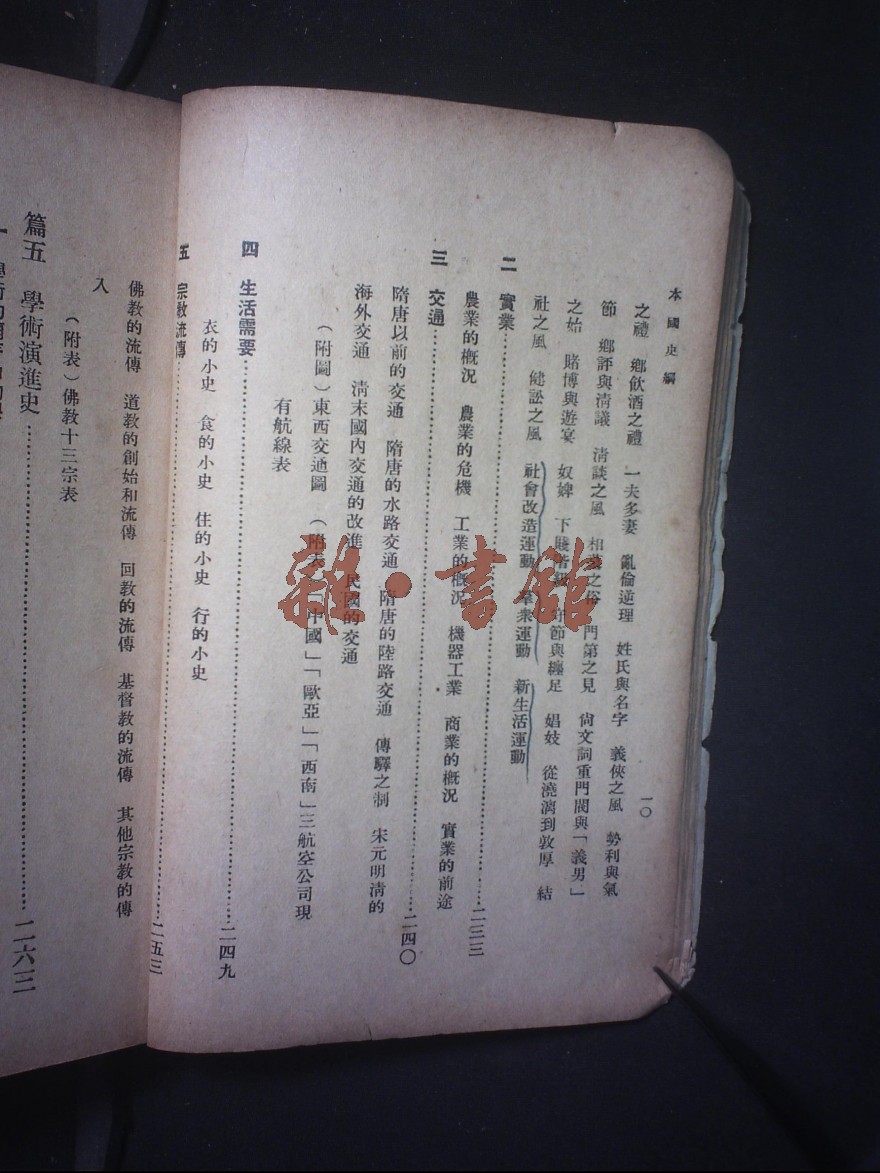 本國史編
一〇
之禮　鄉飲酒之禮　一夫多妻　亂倫逆理　姓氏與名字　義俠之風　勢利與氣
節　鄉評與清議　清談之風　相墓之俗　門第之見　尙文詞重門閥與「義男」
之始　賭博與遊宴　奴婢　下賤階級　守節與纏足　娼妓　從澆漓到敦厚　結
社之風　健訟之風　社會改造運動　羣衆運動　新生活運動
二　實業……二三三
農業的槪況　農業的危機　工業的槪況　機器工業　商業的槪況　實業的前途
三　交通……二四〇
隋唐以前的交通　隋唐的水路交通　隋唐的陸路交通　傳驛之制　宋元明清的
海外交通　清末國內交通的改進　民國的交通
（附圖）東西交通圖　（附表）「中國」「歐亞」「西南」三航空公司現
有航線表
四　生活需要……二四九
衣的小史　食的小史　住的小史　行的小史
五　宗敎流傳……二五三
佛敎的流傳　道敎的創始和流傳　回敎的流傳　基督敎的流傳　其他宗敎的傳
入
（附表）佛敎十三宗表
篇五　學術演進史……二六三
雜·書館